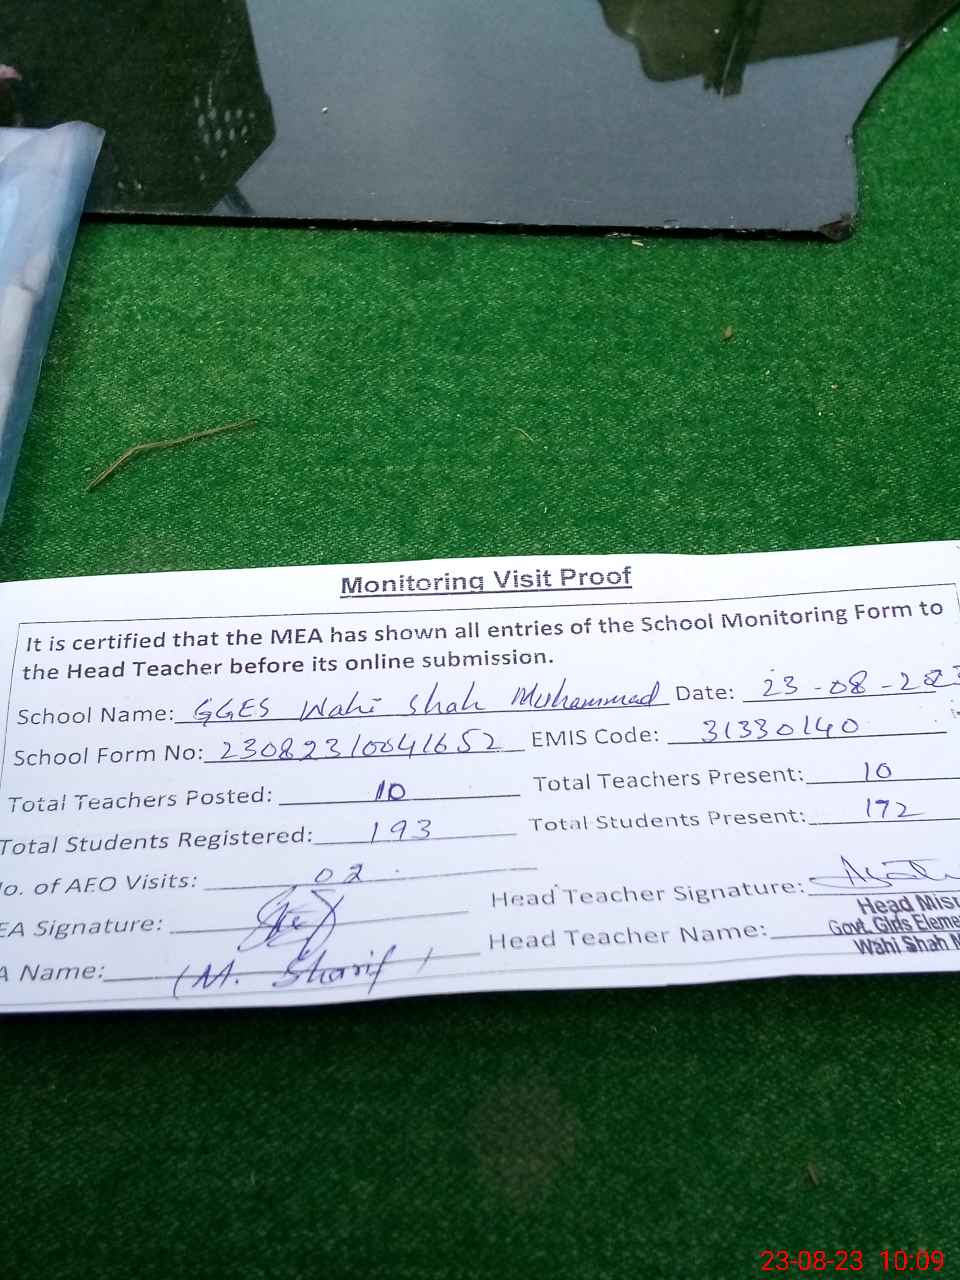 Monitoring Visit Proof
It is certified that the MEA has shown all entries of the School Monitoring Form to
the Head Teacher before its online submission.
School Name: GGES Wahi Shah Muhammad Date: 23-08-2023
School Form No: 23082310041652 EMIS Code: 31330140
Total Teachers Posted: 10 Total Teachers Present: 10
Total Students Registered: 193 Total Students Present: 172
No. of AEO Visits: 02
EA Signature: Head Teacher Signature:
Head Mist
A Name: (M. Sharif) Head Teacher Name: Govt. Girls Eleme
Wahi Shah M
23-08-23 10:09